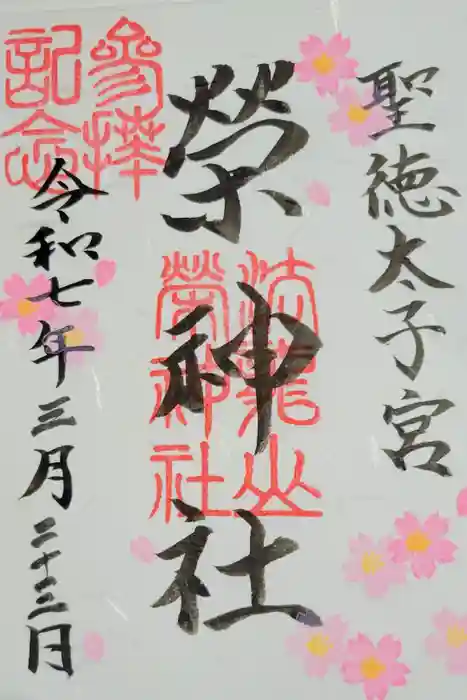 聖徳太子宮
榮神社
法龍山
榮神社
參拝
記念
令和七年三月二十三日